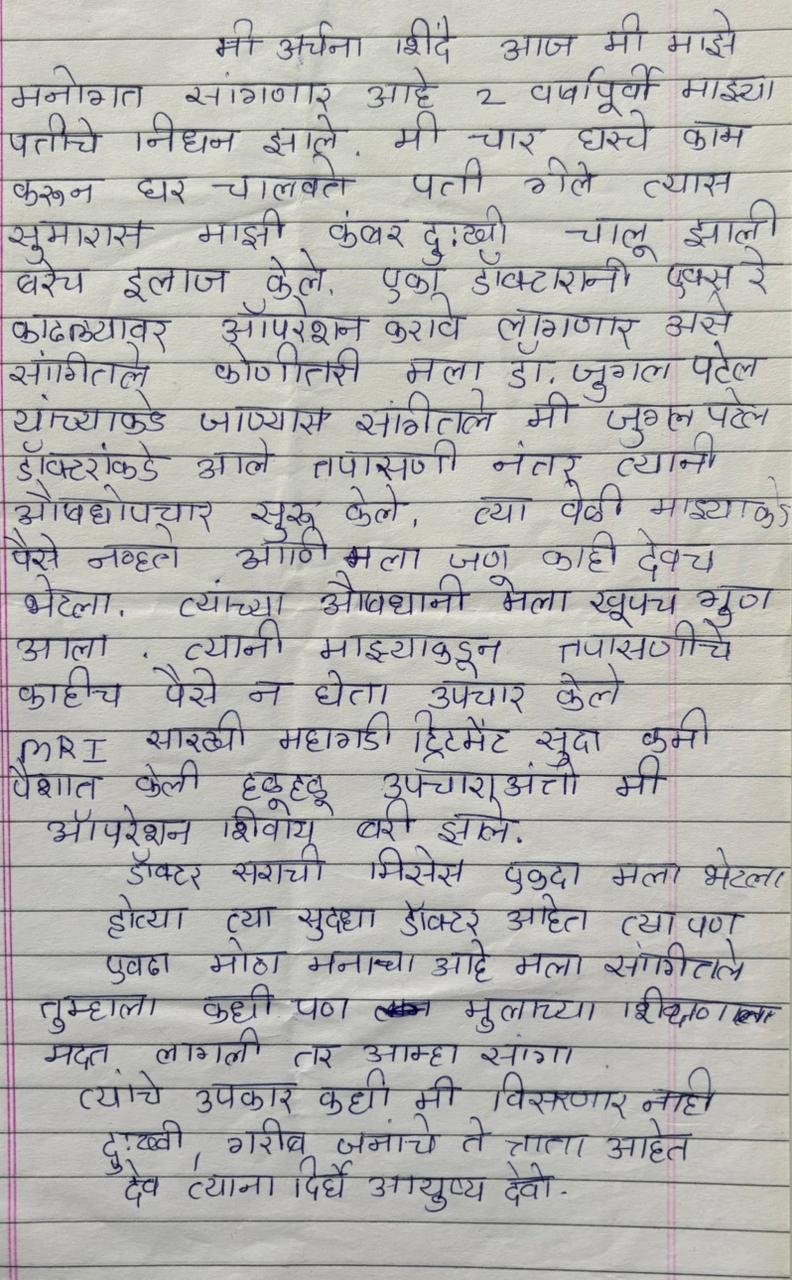 मी अर्चना शिंदे आज मी माझे
मनोगत सांगणार आहे २ वर्षापूर्वी माझ्या
पतीचे निधन झाले. मी चार घरचे काम
करून घर चालवते पती गेले त्यास
सुमारास माझी कंबर दुःखी चालू झाली
बरेच इलाज केले. एका डॉक्टारानी एक्स रे
काढल्यावर ऑपरेशन करावे लागणार असे
सांगितले कोणीतरी मला डॉ. जुगल पटेल
यांच्याकडे जाण्यास सांगीतले मी जुगल पटेल
डॉक्टरांकडे आले तपासणी नंतर त्यानी
औषधोपचार सुरू केले. त्या वेळी माझ्याकडे
पैसे नव्हते आणि मला जणू काही देवच
भेटला. त्यांच्या औषधानी मला खूपच गुण
आला. त्यानी माझ्याकडून तपासणीचे
काहीच पैसे न घेता उपचार केले
MRI सारखी महागडी ट्रिटमेंट सुदा कमी
पैशात केली हळूहळू उपचारा अंती मी
ऑपरेशन शिवाय बरी झाले.
डॉक्टर सराची मिसेस एकदा मला भेटला
होत्या त्या सुदधा डॉक्टर आहेत त्या पण
एवढा मोठा मनाचा आहे मला सांगितले
तुम्हाला कधी पण मुलाच्या शिक्षणाला
मदत लागली तर आम्हा सांगा
त्यांचे उपकार कधी मी विसरणार नाही
दुःखी, गरीब जनांचे ते त्राता आहेत
देव त्याना दिर्घे आयुष्य देवो.